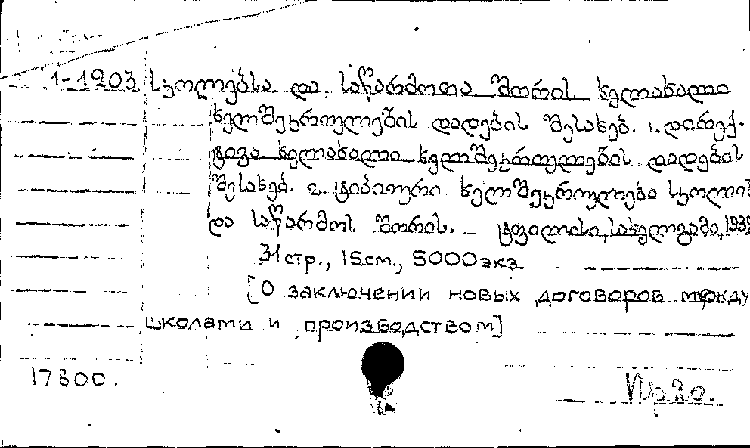 1-1903 სკოლებსა და საწარმოთა შორის ხელახალი
ხელშეკრულების დადების შესახებ. 1. დირექ-
ტივა ხელახალი ხელშეკრულების დადების
შესახებ. 2. ტიპიური ხელშეკრულება სკოლის
და საწარმოს შორის. — ტფილისი, სახელგამი, 193
31 стр., 15 см., 5000 экз
[О заключении новых договоров между
школами и производством]
17300.